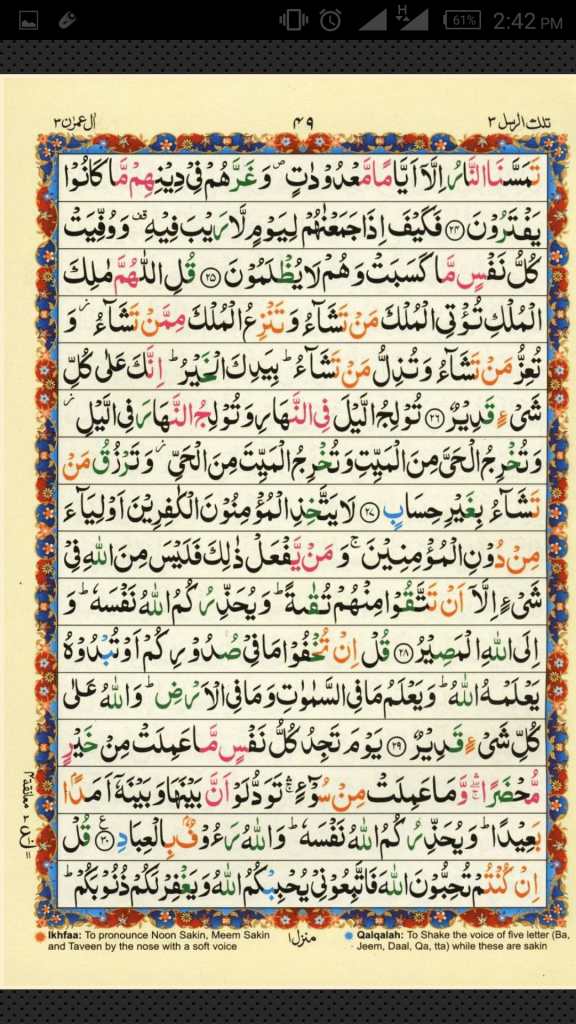 61% 2:42 PM
تلك الرسل ٣ ٤٩ اٰل عمرٰن ٣
تَمَسَّنَا النَّارُ اِلَّاۤ اَيَّامًا مَّعْدُوْدٰتٍ ۪ وَغَرَّهُمْ فِيْ دِيْنِهِمْ مَّا كَانُوْا
يَفْتَرُوْنَ ﴿۲۴﴾ فَكَيْفَ اِذَا جَمَعْنٰهُمْ لِيَوْمٍ لَّا رَيْبَ فِيْهِ ۫ وَوُفِّيَتْ
كُلُّ نَفْسٍ مَّا كَسَبَتْ وَهُمْ لَا يُظْلَمُوْنَ ﴿۲۵﴾ قُلِ اللّٰهُمَّ مٰلِكَ
الْمُلْكِ تُؤْتِي الْمُلْكَ مَنْ تَشَآءُ وَتَنْزِعُ الْمُلْكَ مِمَّنْ تَشَآءُ ۫ وَ
تُعِزُّ مَنْ تَشَآءُ وَتُذِلُّ مَنْ تَشَآءُ ؕ بِيَدِكَ الْخَيْرُ ؕ اِنَّكَ عَلٰى كُلِّ
شَيْءٍ قَدِيْرٌ ﴿۲۶﴾ تُوْلِجُ الَّيْلَ فِي النَّهَارِ وَتُوْلِجُ النَّهَارَ فِي الَّيْلِ ۫
وَتُخْرِجُ الْحَيَّ مِنَ الْمَيِّتِ وَتُخْرِجُ الْمَيِّتَ مِنَ الْحَيِّ ۫ وَتَرْزُقُ مَنْ
تَشَآءُ بِغَيْرِ حِسَابٍ ﴿۲۷﴾ لَا يَتَّخِذِ الْمُؤْمِنُوْنَ الْكٰفِرِيْنَ اَوْلِيَآءَ
مِنْ دُوْنِ الْمُؤْمِنِيْنَ ۚ وَمَنْ يَّفْعَلْ ذٰلِكَ فَلَيْسَ مِنَ اللّٰهِ فِيْ
شَيْءٍ اِلَّاۤ اَنْ تَتَّقُوْا مِنْهُمْ تُقٰىةً ؕ وَيُحَذِّرُكُمُ اللّٰهُ نَفْسَهٗ ؕ وَ
اِلَى اللّٰهِ الْمَصِيْرُ ﴿۲۸﴾ قُلْ اِنْ تُخْفُوْا مَا فِيْ صُدُوْرِكُمْ اَوْ تُبْدُوْهُ
يَعْلَمْهُ اللّٰهُ ؕ وَيَعْلَمُ مَا فِي السَّمٰوٰتِ وَمَا فِي الْاَرْضِ ؕ وَاللّٰهُ عَلٰى
كُلِّ شَيْءٍ قَدِيْرٌ ﴿۲۹﴾ يَوْمَ تَجِدُ كُلُّ نَفْسٍ مَّا عَمِلَتْ مِنْ خَيْرٍ
مُّحْضَرًا ۛۚ وَّمَا عَمِلَتْ مِنْ سُوْٓءٍ ۛۚ تَوَدُّ لَوْ اَنَّ بَيْنَهَا وَبَيْنَهٗۤ اَمَدًا
بَعِيْدًا ؕ وَيُحَذِّرُكُمُ اللّٰهُ نَفْسَهٗ ؕ وَاللّٰهُ رَءُوْفٌۢ بِالْعِبَادِ ﴿۳۰﴾ قُلْ
اِنْ كُنْتُمْ تُحِبُّوْنَ اللّٰهَ فَاتَّبِعُوْنِيْ يُحْبِبْكُمُ اللّٰهُ وَيَغْفِرْ لَكُمْ ذُنُوْبَكُمْ ؕ
Ikhfaa: To pronounce Noon Sakin, Meem Sakin
and Taveen by the nose with a soft voice
منزل ١
Qalqalah: To Shake the voice of five letter (Ba,
Jeem, Daal, Qa, tta) while these are sakin